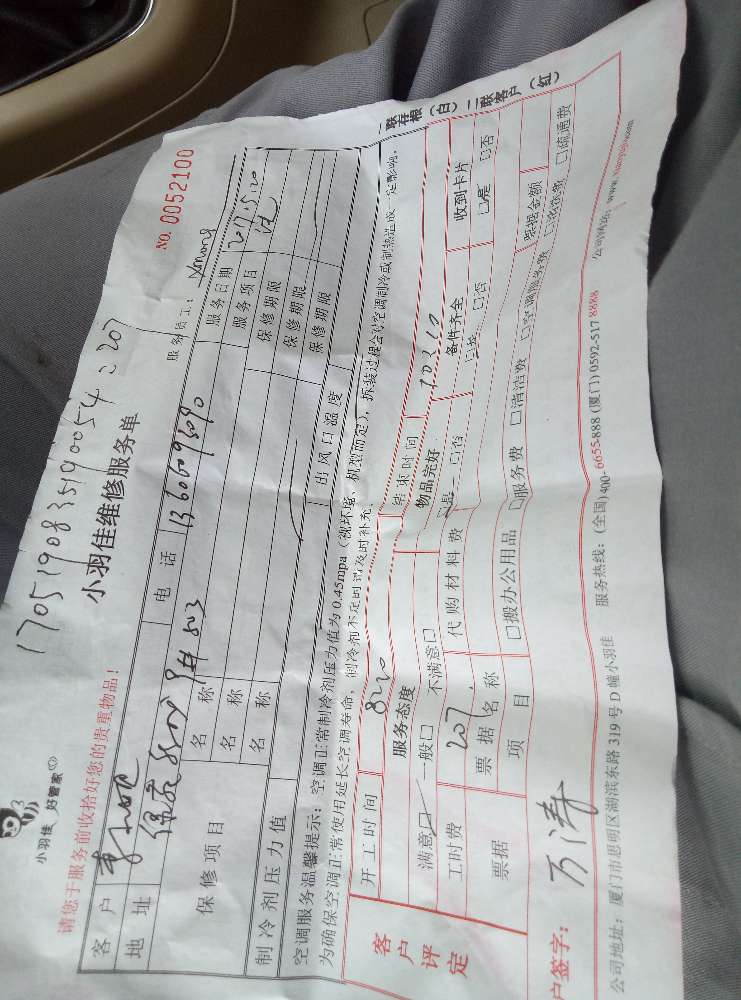 170519083519005
小羽佳 好管家
小羽佳维修服务单
NO. 0052100
请您于服务前收拾好您的贵重物品！
服务员工：
客户
电话 13606093090
服务日期 2017.5.20
地址
803
服务项目
保修项目
名称
保修期限
名称
保修期限
名称
保修期限
制冷剂压力值
出风口温度
空调服务温馨提示：空调正常制冷剂压力值为0.45mpa（视环境、机型而定），拆装过程会对空调制冷或制热造成一定影响，
为确保空调正常使用延长空调寿命，制冷剂不足时请及时补充。
一联存根（白）二联客户（红）
客户评定
开工时间 8:20
结束时间
服务态度
物品完好
备件齐全
收到卡片
满意□ 一般□ 不满意□
□是 □否
□是 □否
□是 □否
工时费 207
代购材料费
票据
票据名称
票据金额
项目
□搬办公用品 □服务费 □清洁费 □空调服务费 □疏通费
户签字：万涛
公司地址：厦门市思明区湖滨东路319号D幢小羽佳
服务热线：（全国）400-6655-888（厦门）0592-5178888
公司网站：www.xiaoyujia.com